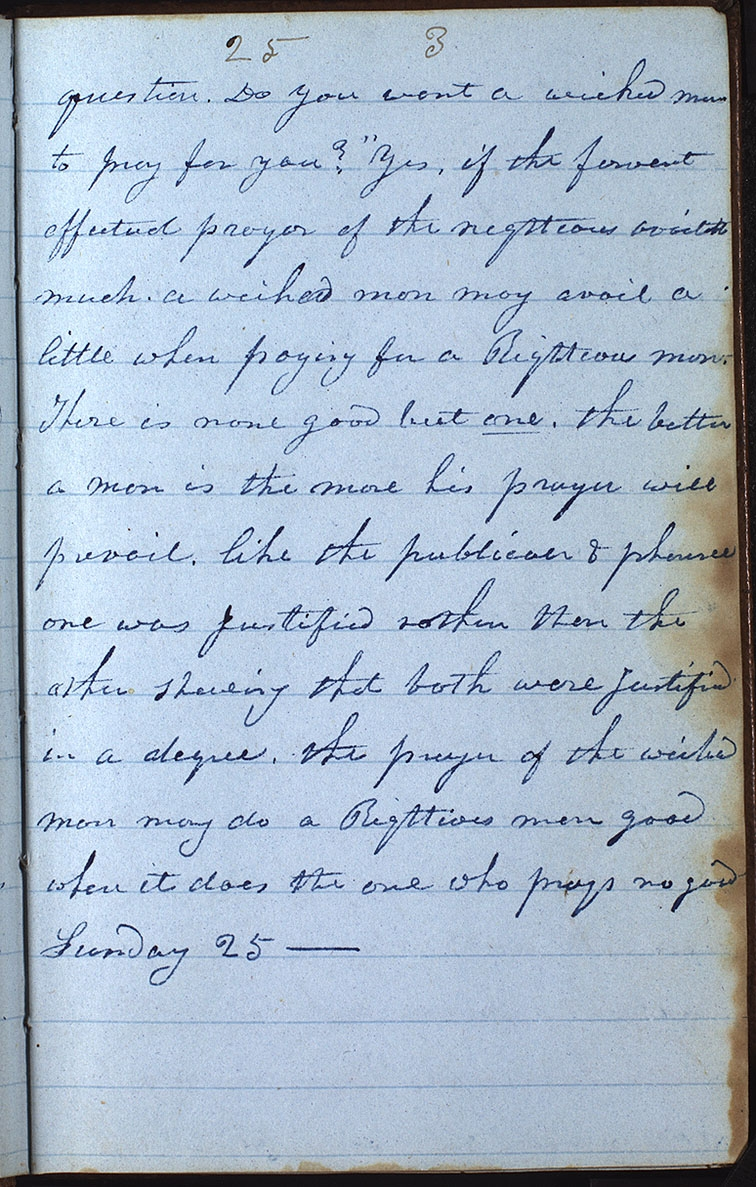 25 3
question. Do you want a wicked man
to pray for you?" Yes, if the fervent
effectual prayer of the righteous availeth
much. a wicked man may avail a
little when praying for a Righteous man.
There is none good but one. the better
a man is the more his prayer will
prevail. like the publican & pharisee
one was Justified rather than the
other shewing that both were Justified
in a degree. the prayer of the wicked
man may do a Righteous man good
when it does the one who prays no good
Sunday 25 —